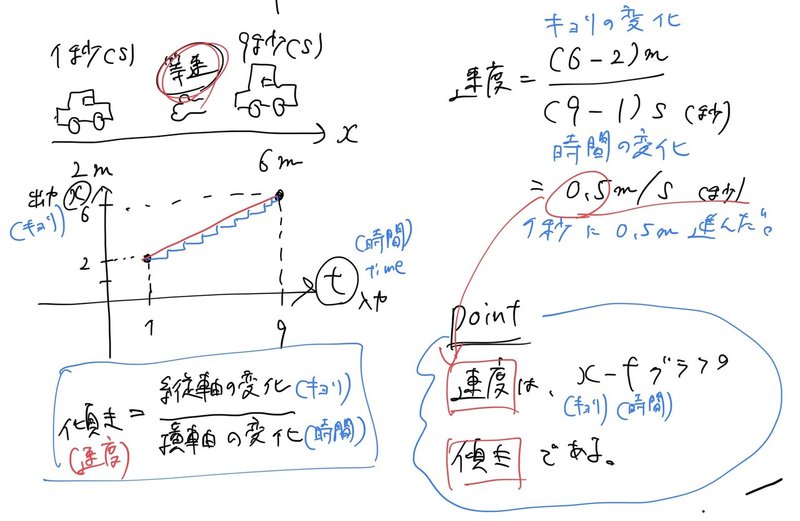 1秒(s)
9秒(s)
等速
x
2m
6m
出力 x
(キョリ)
6
2
1
9
(時間)
time
t
入力
傾き = 縦軸の変化(キョリ) / 横軸の変化(時間)
(速度)
キョリの変化
速度 = (6-2)m / (9-1)s (秒)
時間の変化
= 0.5m/s (秒)
1秒に 0.5m 進んだ。
point
速度は、x-tグラフの
(キョリ)(時間)
傾きである。